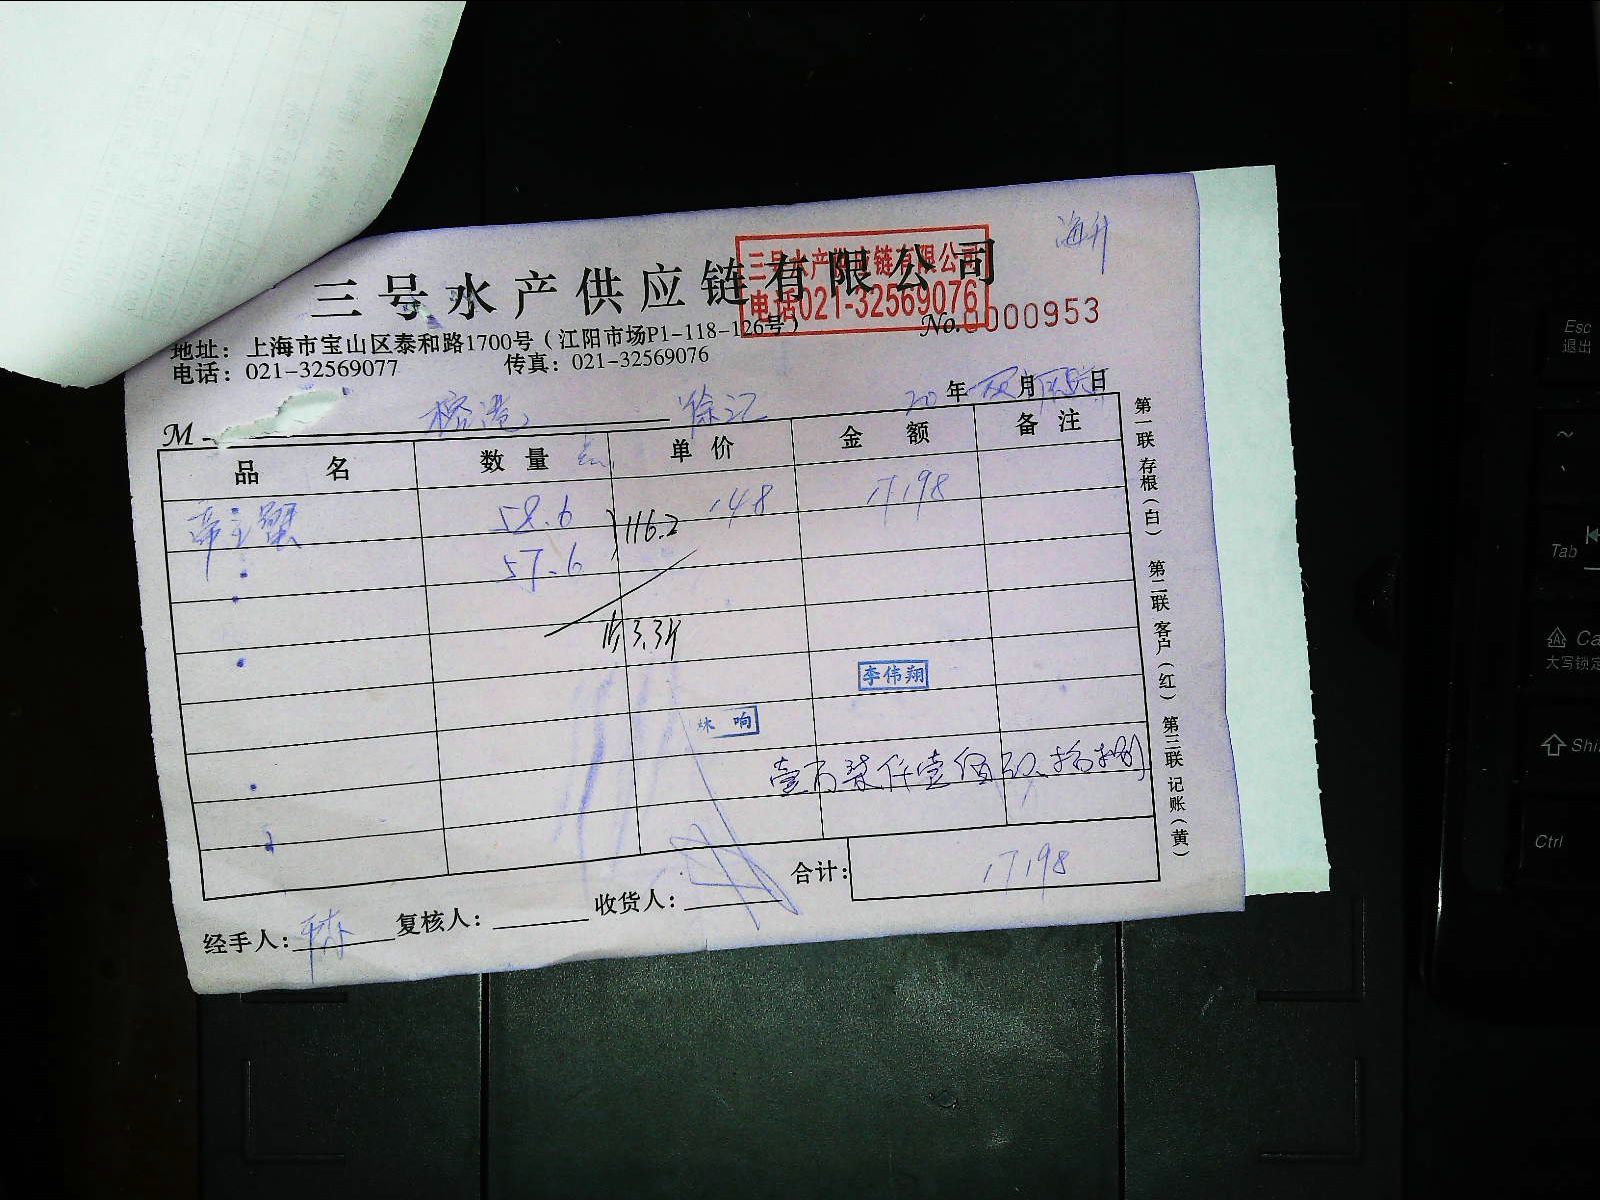 海升
三号水产供应链有限公司
三号水产供应链有限公司
电话021-32569076
No.0000953
地址：上海市宝山区泰和路1700号（江阳市场P1-118-126号）
电话：021-32569077 传真：021-32569076
M 榕港 徐汇 20 年 月 日
品 名 数 量 单 价 金 额 备 注
帝王蟹 58.6 148 17198
116.2
57.6
3.3斤
李伟翔
林 响
壹万柒仟壹佰玖拾捌
合计： 17198
经手人： 复核人： 收货人：
第一联 存根（白） 第二联 客户（红） 第三联 记账（黄）
Esc
退出
~
Tab
Ca
大写锁定
Shi
Ctrl